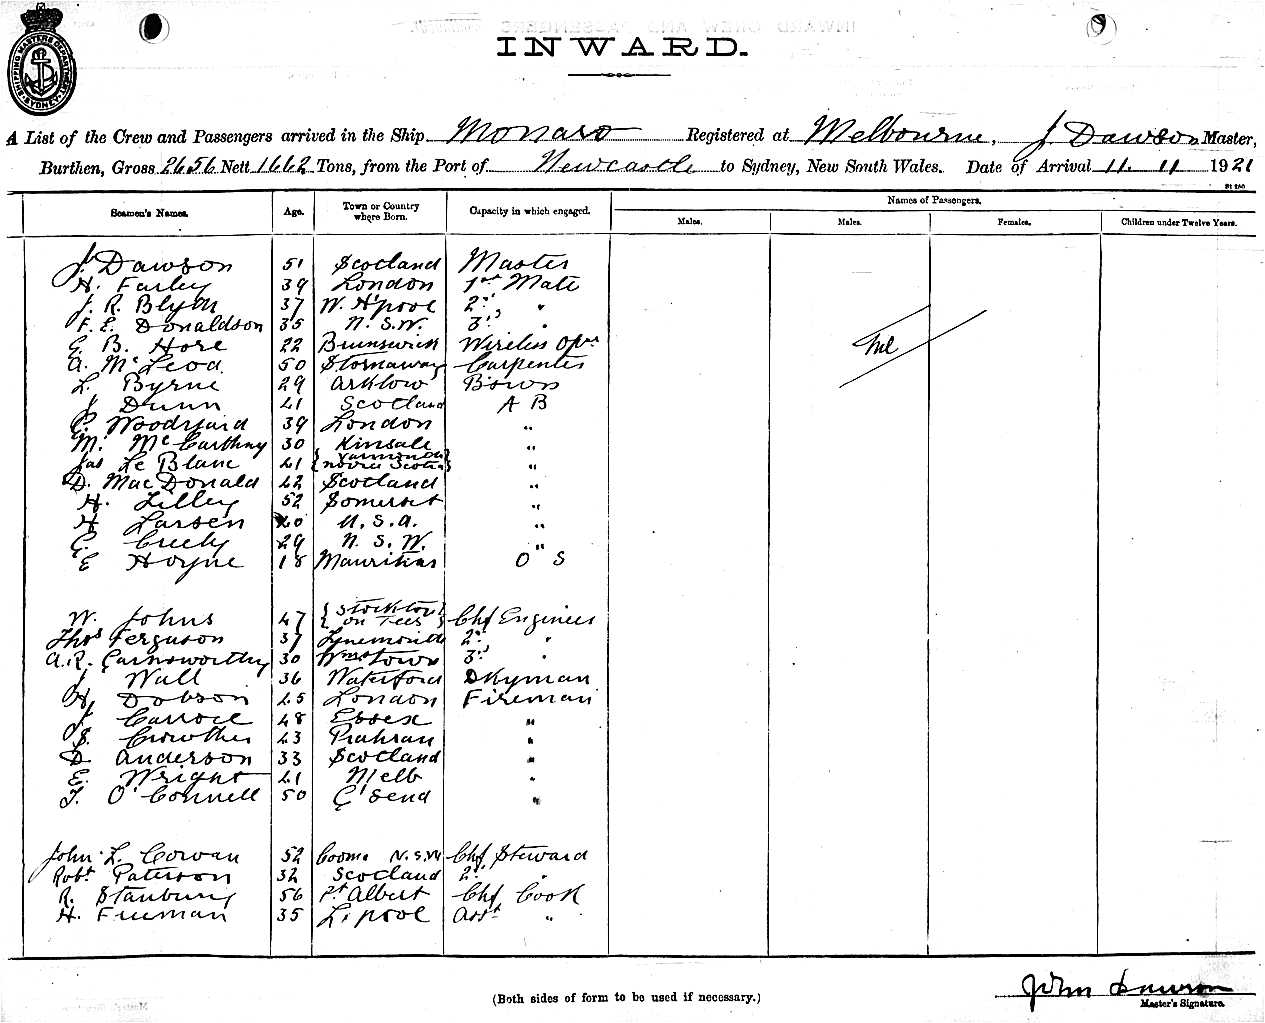 SHIPPING MASTERS DEPARTMENT SYDNEY
INWARD.
A List of the Crew and Passengers arrived in the Ship Monaro Registered at Melbourne, J. Dawson Master,
Burthen, Gross 2656 Nett 1662 Tons, from the Port of Newcastle to Sydney, New South Wales. Date of Arrival 11. 11 1921
Seamen's Names. Age. Town or Country where Born. Capacity in which engaged. Names of Passengers.
Males. Males. Females. Children under Twelve Years.
J. Dawson 51 Scotland Master
H. Farley 39 London 1st Mate
J. R. Blyth 37 W. H'pool 2nd "
F. E. Donaldson 35 N. S. W. 3rd "
E. B. Hore 22 Brunswick Wireless Opr
Nil
A. McLeod 50 Stornaway Carpenter
L. Byrne 29 Arklow Bosun
J Dunn 41 Scotland A B
C. Woodyard 39 London "
M. McCarthny 30 Kinsale "
Jas Le Blanc 41 { Yarmouth Novia Scotia } "
D. MacDonald 42 Scotland "
H. Lilley 52 Somerset "
H Larsen 40 U. S. A. "
C. Creely 29 N. S. W. "
E Hoyne 18 Mauritius O S
W. Johns 47 { Stockton on Tees } Chf Engineer
Thos Ferguson 37 Tynemouth 2nd "
A. R. Garnsworthy 30 Wmstown 3rd "
J Wall 36 Waterford Dkyman
H. Dobson 45 London Fireman
J Carroll 48 Essex "
S. Crowther 43 Prahran "
D Anderson 33 Scotland "
E. Wright 41 Melb "
T. O'Connell 50 G'Send "
John L. Cowan 52 Cooma N.S.W Chf Steward
Robt Paterson 32 Scotland 2nd "
R. Stanbury 56 Pt Albert Chf Cook
H. Freeman 35 L'pool Asst "
John Dawson
Master's Signature.
(Both sides of form to be used if necessary.)